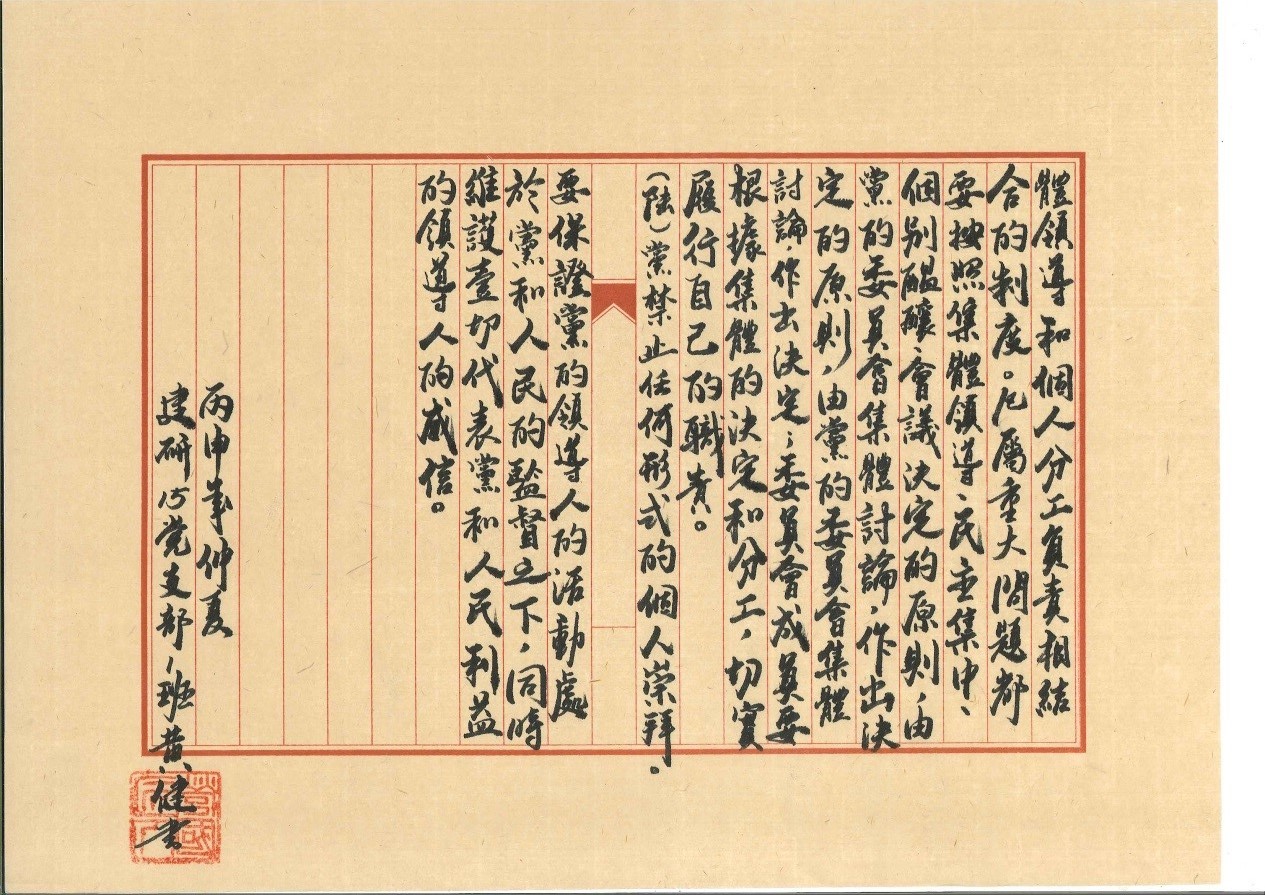 體領導和個人分工負責相結
合的制度。凡屬重大問題都
要按照集體領導、民主集中、
個别醞釀、會議決定的原則，由
黨的委員會集體討論，作出決
定的原則，由黨的委員會集體
討論，作出決定；委員會成員要
根據集體的決定和分工，切實
履行自己的職責。
（陸）黨禁止任何形式的個人崇拜。
要保證黨的領導人的活動處
於黨和人民的監督之下，同時
維護壹切代表黨和人民利益
的領導人的威信。
丙申年仲夏
建研15党支部1班黄健書